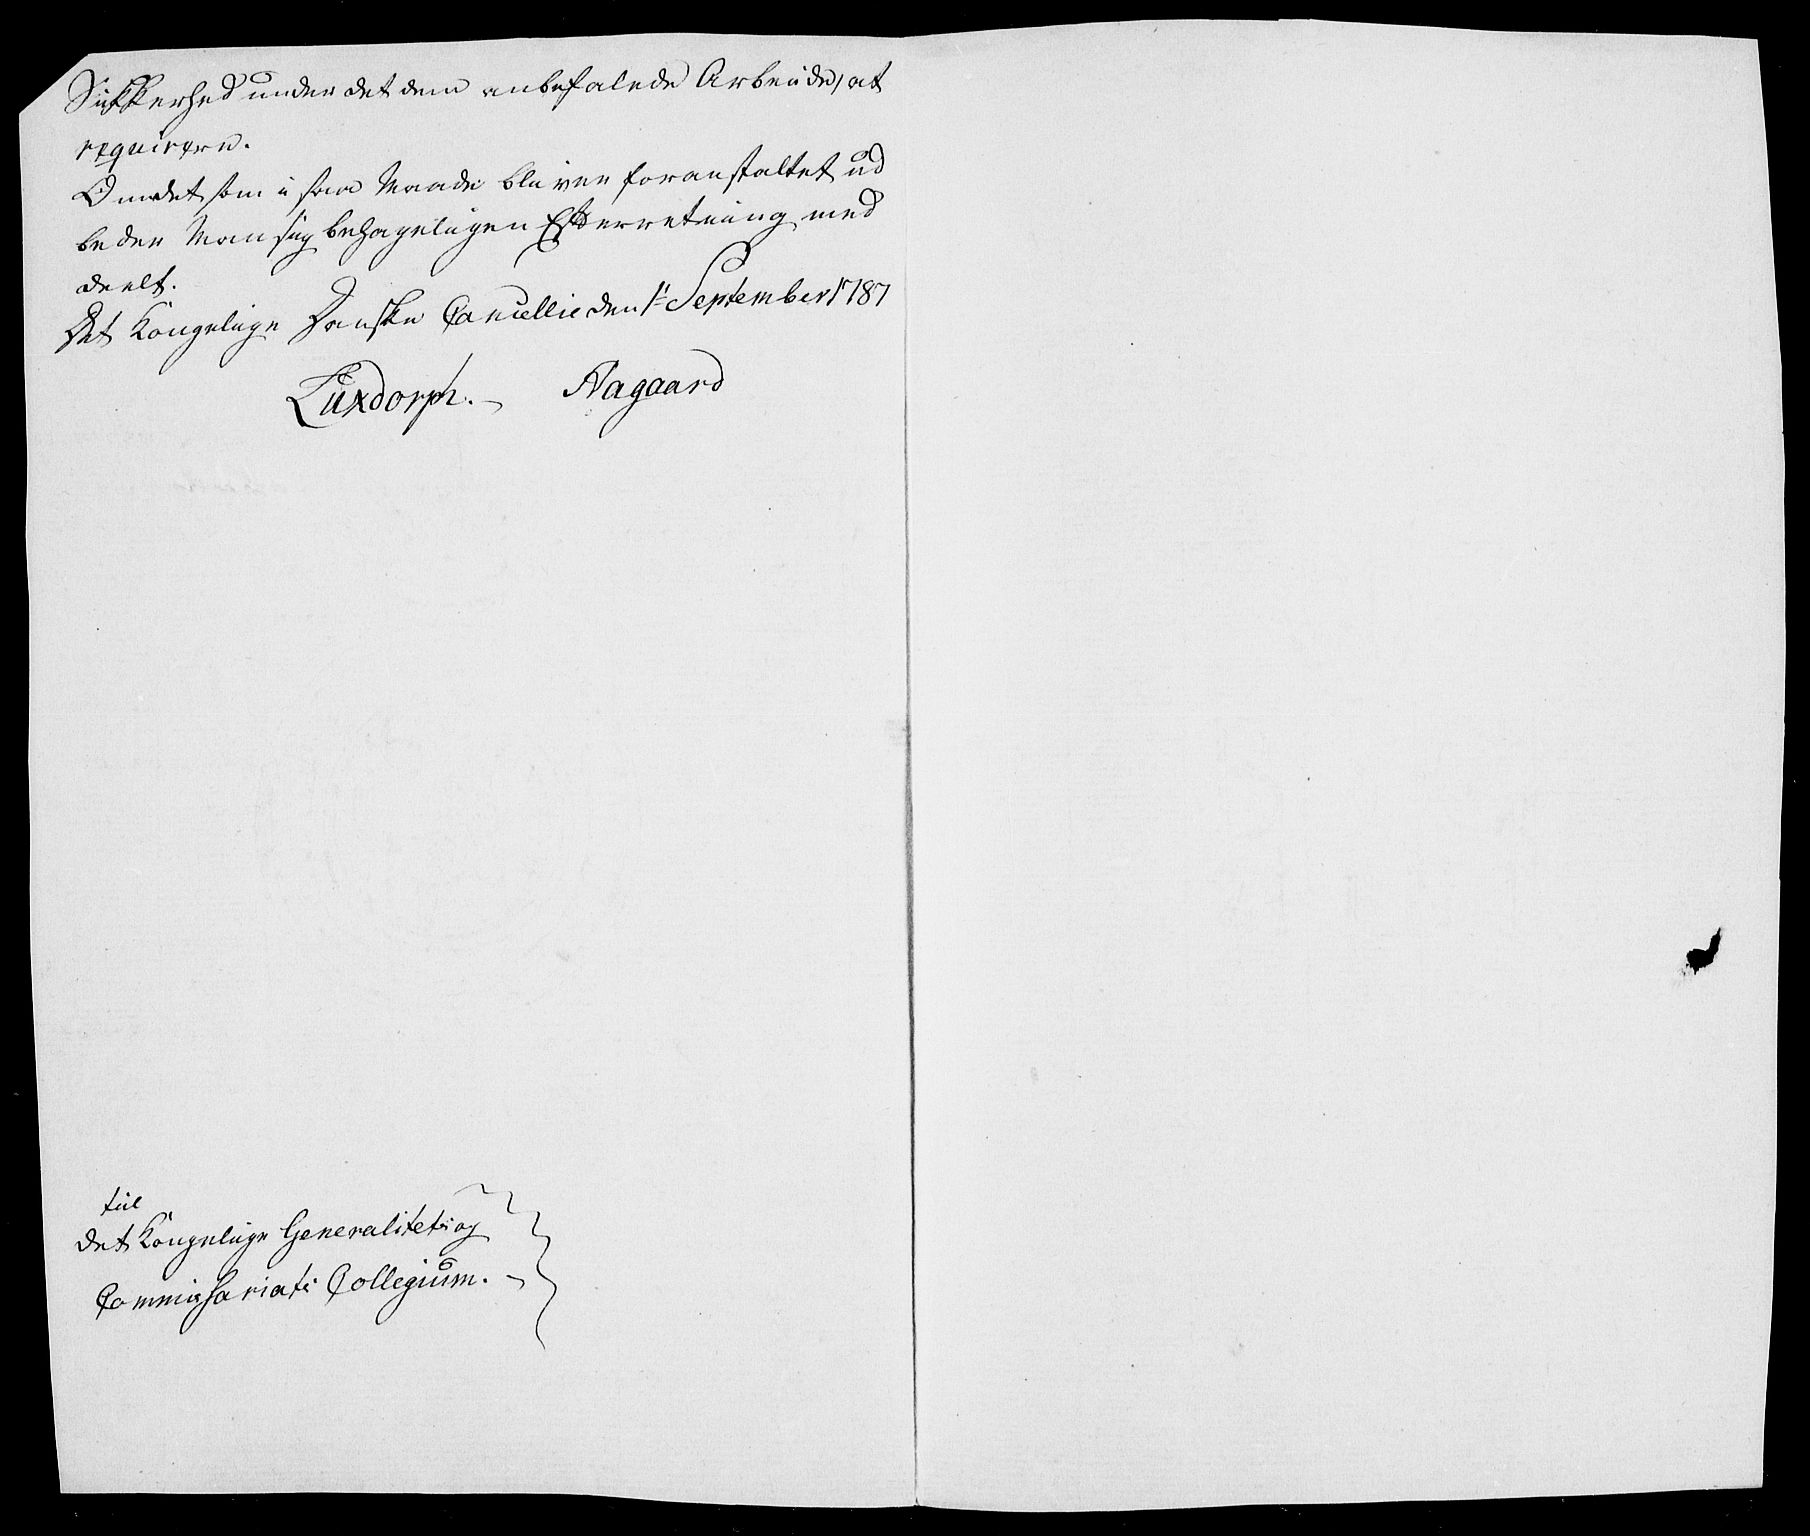 Sikkerhed under det dem anbefalede Arbeide, at
reqvirere.
Om det som i saa Maade bliver foranstaltet ud
beder Man sig behageligen Efterretning med
deelt.
Det Kongelige Danske Cancellie den 1t September 1787
Luxdorph. Aagaard
til
det Kongelige Generalitets og
Commissariats Collegium.